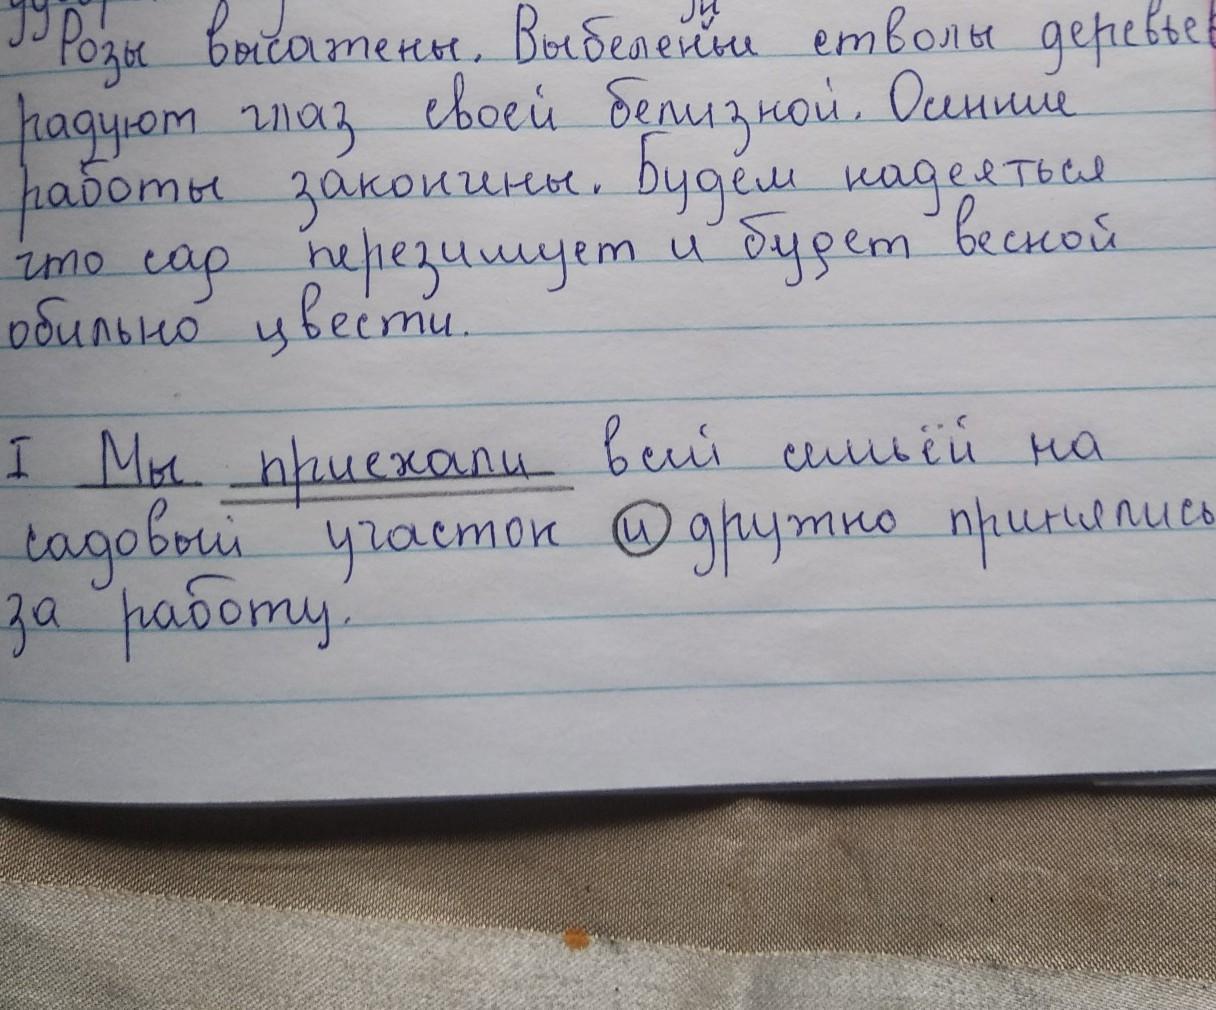 Розы высатены. Выбелены стволы деревье
радуют глаз своей белизной. Осинние
работы закончины. Будем надеяться
что сар перезимует и будет весной
обильно цвести.
I Мы приехали всий симьёй на
садовый участок и дружно принялись
за работу.